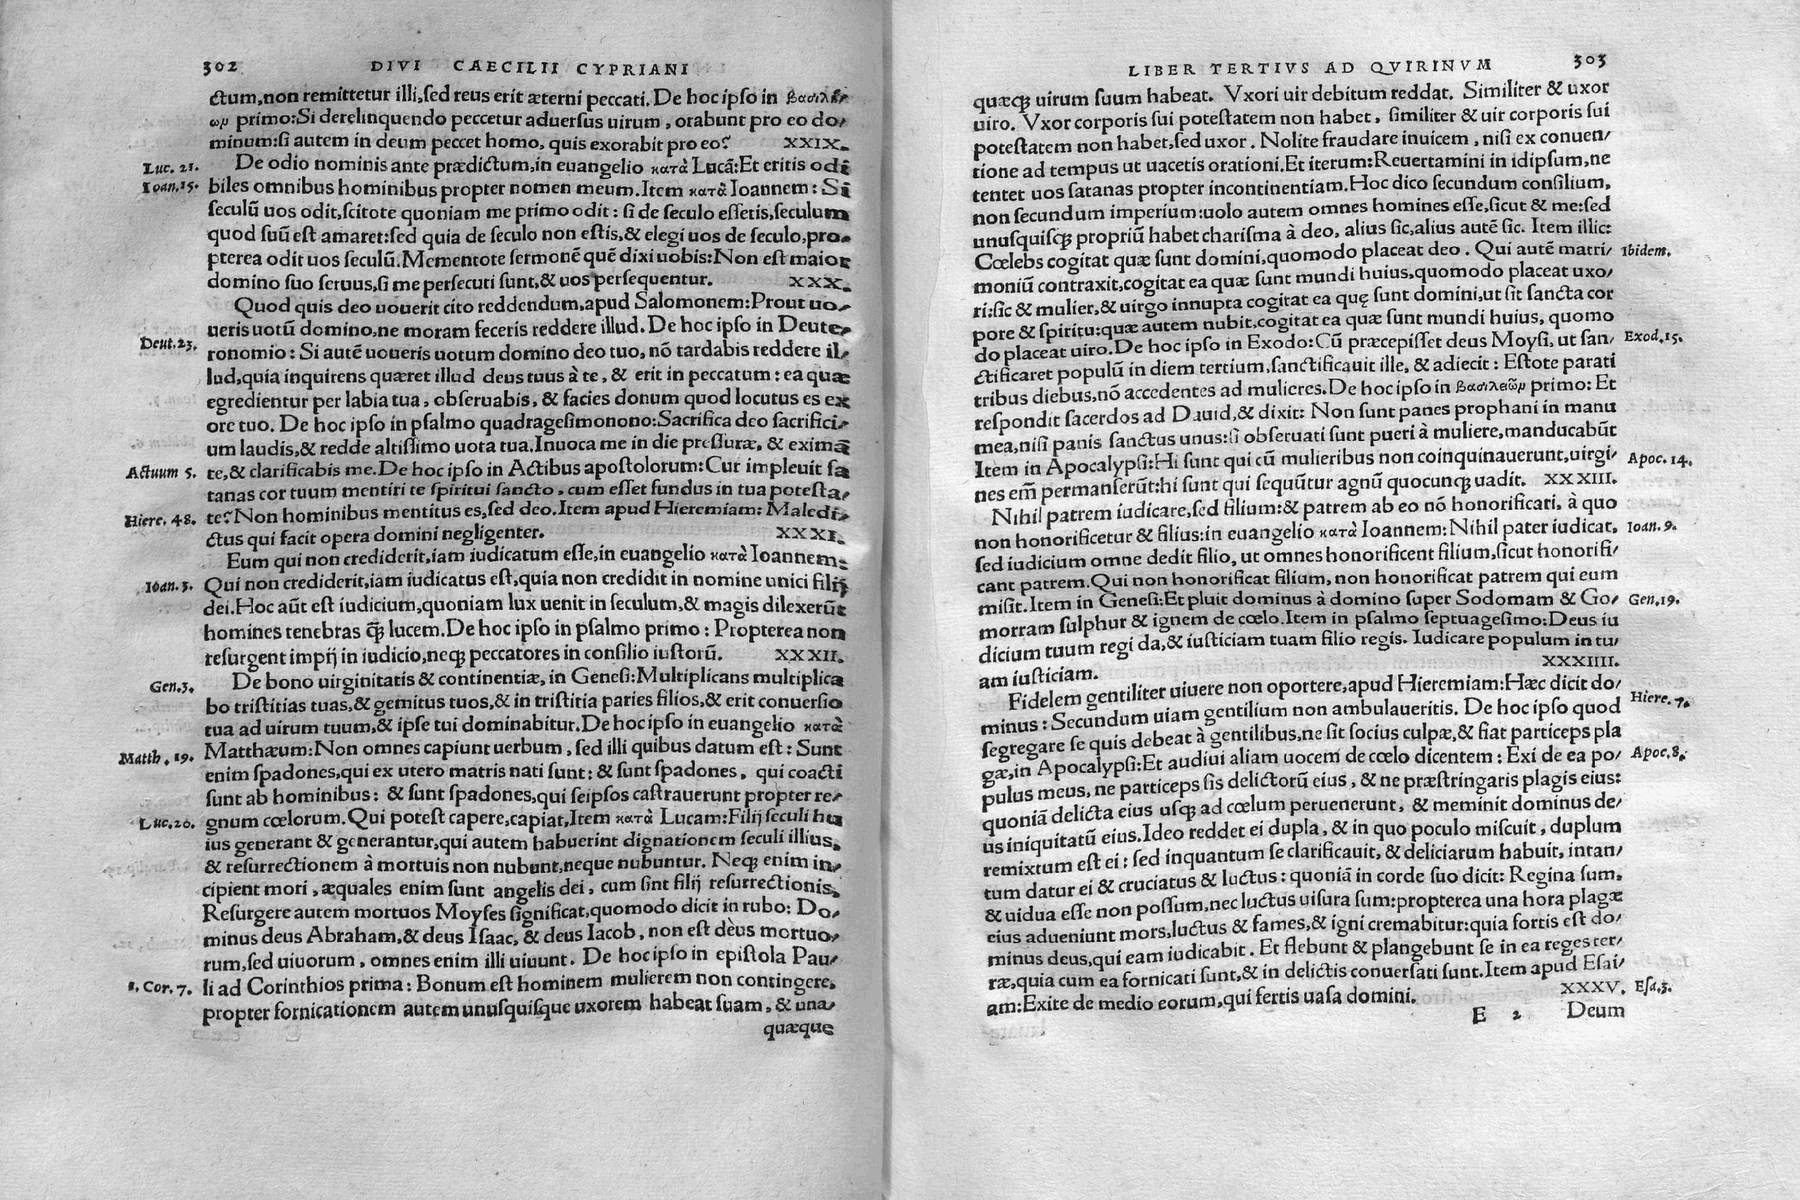 302 DIVI CAECILII CYPRIANI
ctum,non remittetur illi,sed reus erit æterni peccati. De hoc ipso in βασιλει/
ωμ primo:Si derelinquendo peccetur aduersus uirum, orabunt pro eo do/
minum:si autem in deum peccet homo, quis exorabit pro eo? XXIX.
Luc. 21. De odio nominis ante prædictum,in euangelio κατὰ Lucã:Et eritis odi
Ioan.15. biles omnibus hominibus propter nomen meum.Item κατὰ Ioannem: Si
seculũ uos odit,scitote quoniam me primo odit: si de seculo essetis,seculum
quod suũ est amaret:sed quia de seculo non estis,& elegi uos de seculo,pro/
pterea odit uos seculũ.Mementote sermonẽ quẽ dixi uobis:Non est maior
domino suo seruus,si me persecuti sunt,& uos persequentur. XXX.
Quod quis deo uouerit cito reddendum,apud Salomonem:Prout uo/
ueris uotũ domino,ne moram feceris reddere illud. De hoc ipso in Deute/
Deut.23. ronomio: Si autẽ uoueris uotum domino deo tuo, nõ tardabis reddere il/
lud,quia inquirens quæret illud deus tuus à te, & erit in peccatum: ea quæ
egredientur per labia tua, obseruabis, & facies donum quod locutus es ex
ore tuo. De hoc ipso in psalmo quadragesimonono:Sacrifica deo sacrifici/
um laudis,& redde altissimo uota tua.Inuoca me in die pressuræ, & eximã
Actuum 5. te,& clarificabis me.De hoc ipso in Actibus apostolorum:Cur impleuit sa
tanas cor tuum mentiri te spiritui sancto, cum esset fundus in tua potesta/
Hiere. 48. te? Non hominibus mentitus es,sed deo.Item apud Hieremiam: Maledi/
ctus qui facit opera domini negligenter. XXXI.
Eum qui non crediderit,iam iudicatum esse,in euangelio κατὰ Ioannem:
Ioan.3. Qui non crediderit,iam iudicatus est,quia non credidit in nomine unici filij
dei.Hoc aũt est iudicium,quoniam lux uenit in seculum,& magis dilexerũt
homines tenebras q̃ lucem.De hoc ipso in psalmo primo: Propterea non
resurgent impij in iudicio,neq; peccatores in consilio iustorũ. XXXII.
Gen.3. De bono uirginitatis & continentiæ, in Genesi:Multiplicans multiplica
bo tristitias tuas,& gemitus tuos,& in tristitia paries filios,& erit conuersio
tua ad uirum tuum,& ipse tui dominabitur.De hoc ipso in euangelio κατὰ
Matth. 19. Matthæum:Non omnes capiunt uerbum, sed illi quibus datum est: Sunt
enim spadones,qui ex utero matris nati sunt: & sunt spadones, qui coacti
sunt ab hominibus: & sunt spadones,qui seipsos castrauerunt propter re/
Luc.20. gnum cœlorum.Qui potest capere,capiat,Item κατὰ Lucam:Filij seculi hu
ius generant & generantur,qui autem habuerint dignationem seculi illius,
& resurrectionem à mortuis non nubunt,neque nubuntur. Neq; enim in/
cipient mori, æquales enim sunt angelis dei, cum sint filij resurrectionis.
Resurgere autem mortuos Moyses significat,quomodo dicit in rubo: Do/
minus deus Abraham,& deus Isaac, & deus Iacob, non est deus mortuo/
rum,sed uiuorum, omnes enim illi uiuunt. De hoc ipso in epistola Pau/
1. Cor. 7. li ad Corinthios prima: Bonum est hominem mulierem non contingere,
propter fornicationem autem unusquisque uxorem habeat suam, & una/
quæque
LIBER TERTIVS AD QVIRINVM 303
quæq; uirum suum habeat. Vxori uir debitum reddat. Similiter & uxor
uiro. Vxor corporis sui potestatem non habet, similiter & uir corporis sui
potestatem non habet,sed uxor. Nolite fraudare inuicem, nisi ex conuen/
tione ad tempus ut uacetis orationi.Et iterum:Reuertamini in idipsum,ne
tentet uos satanas propter incontinentiam.Hoc dico secundum consilium,
non secundum imperium:uolo autem omnes homines esse,sicut & me:sed
unusquisq; propriũ habet charisma à deo, alius sic,alius autẽ sic. Item illic:
Cœlebs cogitat quæ sunt domini,quomodo placeat deo. Qui autẽ matri/ Ibidem.
moniũ contraxit,cogitat ea quæ sunt mundi huius,quomodo placeat uxo/
ri:sic & mulier,& uirgo innupta cogitat ea quę sunt domini,ut sit sancta cor
pore & spiritu:quæ autem nubit,cogitat ea quæ sunt mundi huius, quomo
do placeat uiro.De hoc ipso in Exodo:Cũ præcepisset deus Moysi, ut san/ Exod.15.
ctificaret populũ in diem tertium,sanctificauit ille, & adiecit: Estote parati
tribus diebus,nõ accedentes ad mulieres.De hoc ipso in βασιλειῶμ primo: Et
respondit sacerdos ad Dauid,& dixit: Non sunt panes prophani in manu
mea,nisi panis sanctus unus:si obseruati sunt pueri à muliere,manducabũt
Item in Apocalypsi:Hi sunt qui cũ mulieribus non coinquinauerunt,uirgi/ Apoc. 14.
nes em̃ permanserũt:hi sunt qui sequũtur agnũ quocunq; uadit. XXXIII.
Nihil patrem iudicare,sed filium:& patrem ab eo nõ honorificati, à quo
non honorificetur & filius:in euangelio κατὰ Ioannem:Nihil pater iudicat, Ioan. 9.
sed iudicium omne dedit filio, ut omnes honorificent filium,sicut honorifi/
cant patrem.Qui non honorificat filium, non honorificat patrem qui eum
misit.Item in Genesi:Et pluit dominus à domino super Sodomam & Go/ Gen.19.
morram sulphur & ignem de cœlo.Item in psalmo septuagesimo:Deus iu
dicium tuum regi da,& iusticiam tuam filio regis. Iudicare populum in tu/
am iusticiam. XXXIIII.
Fidelem gentiliter uiuere non oportere,apud Hieremiam:Hæc dicit do/
minus: Secundum uiam gentilium non ambulaueritis. De hoc ipso quod Hiere. 7.
segregare se quis debeat à gentilibus,ne sit socius culpæ,& fiat particeps pla
gæ,in Apocalypsi:Et audiui aliam uocem de cœlo dicentem: Exi de ea po/ Apoc.8.
pulus meus, ne particeps sis delictorũ eius, & ne præstringaris plagis eius:
quoniã delicta eius usq; ad cœlum peruenerunt, & meminit dominus de/
us iniquitatũ eius.Ideo reddet ei dupla, & in quo poculo miscuit, duplum
remixtum est ei: sed inquantum se clarificauit, & deliciarum habuit, intan/
tum datur ei & cruciatus & luctus: quoniã in corde suo dicit: Regina sum,
& uidua esse non possum,nec luctus uisura sum:propterea una hora plagæ
eius adueniunt mors,luctus & fames,& igni cremabitur:quia fortis est do/
minus deus,qui eam iudicabit. Et flebunt & plangebunt se in ea reges ter/
ræ,quia cum ea fornicati sunt,& in delictis conuersati sunt.Item apud Esai/
am:Exite de medio eorum,qui fertis uasa domini. XXXV. Esa.3.
E 2 Deum